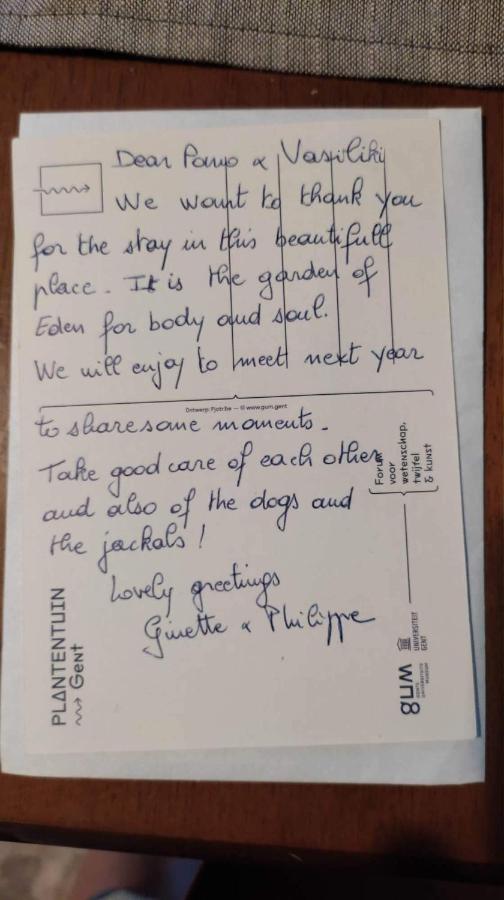 Dear Pamp & Vasiliki
We want to thank you
for the stay in this beautifull
place. It is the garden of
Eden for body and soul.
We will enjoy to meet next year
Ontwerp: Pjotr.be — © www.gum.gent
to share some moments.
Take good care of each other
and also of the dogs and
the jackals!
Lovely greetings
Ginette & Philippe
Forum
voor
wetenschap,
twijfel
& kunst
PLANTENTUIN
Gent
UNIVERSITEIT
GENT
gum
GENTS
UNIVERSITEITS
MUSEUM